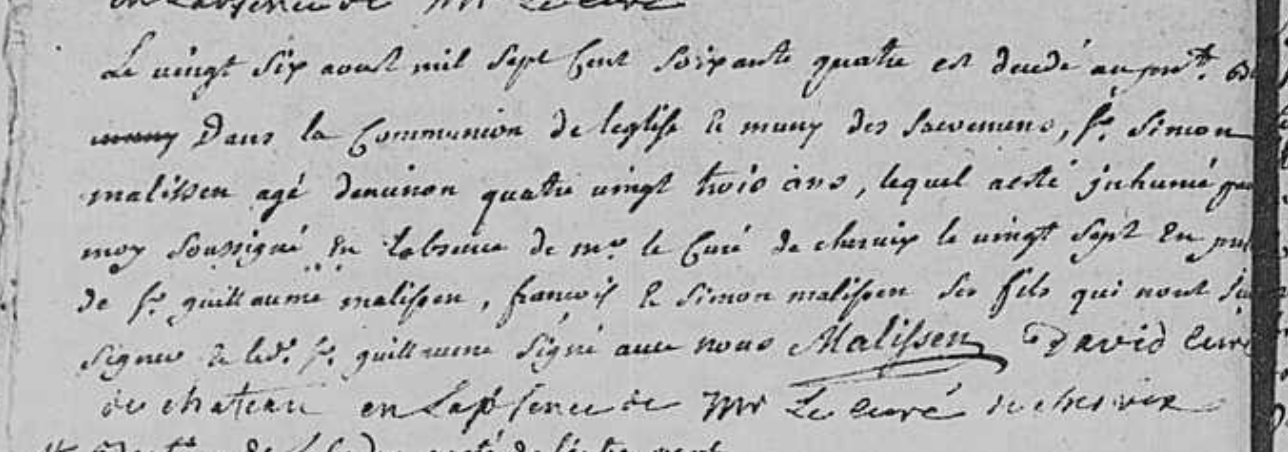 en Labsence de Mr Le curé
Le vingt six aoust mil sept Cent soixante quatre est decedé au pnt.
Dans la Communion de leglise & muny des sacremens, Sr. Simon
malissen agé denviron quatre vingt trois ans, lequel a esté jnhumé par
moy soussigné En labsence de mr. le Curé de cherveix le vingt sept En
de Sr. guillaume malissen, francois & Simon malissen ses fils qui n'ont sçu
signer & led. Sr. guillaume signé avec nous Malissen David curé
de chateau en Lapsence de Mr Le curé de cherveix